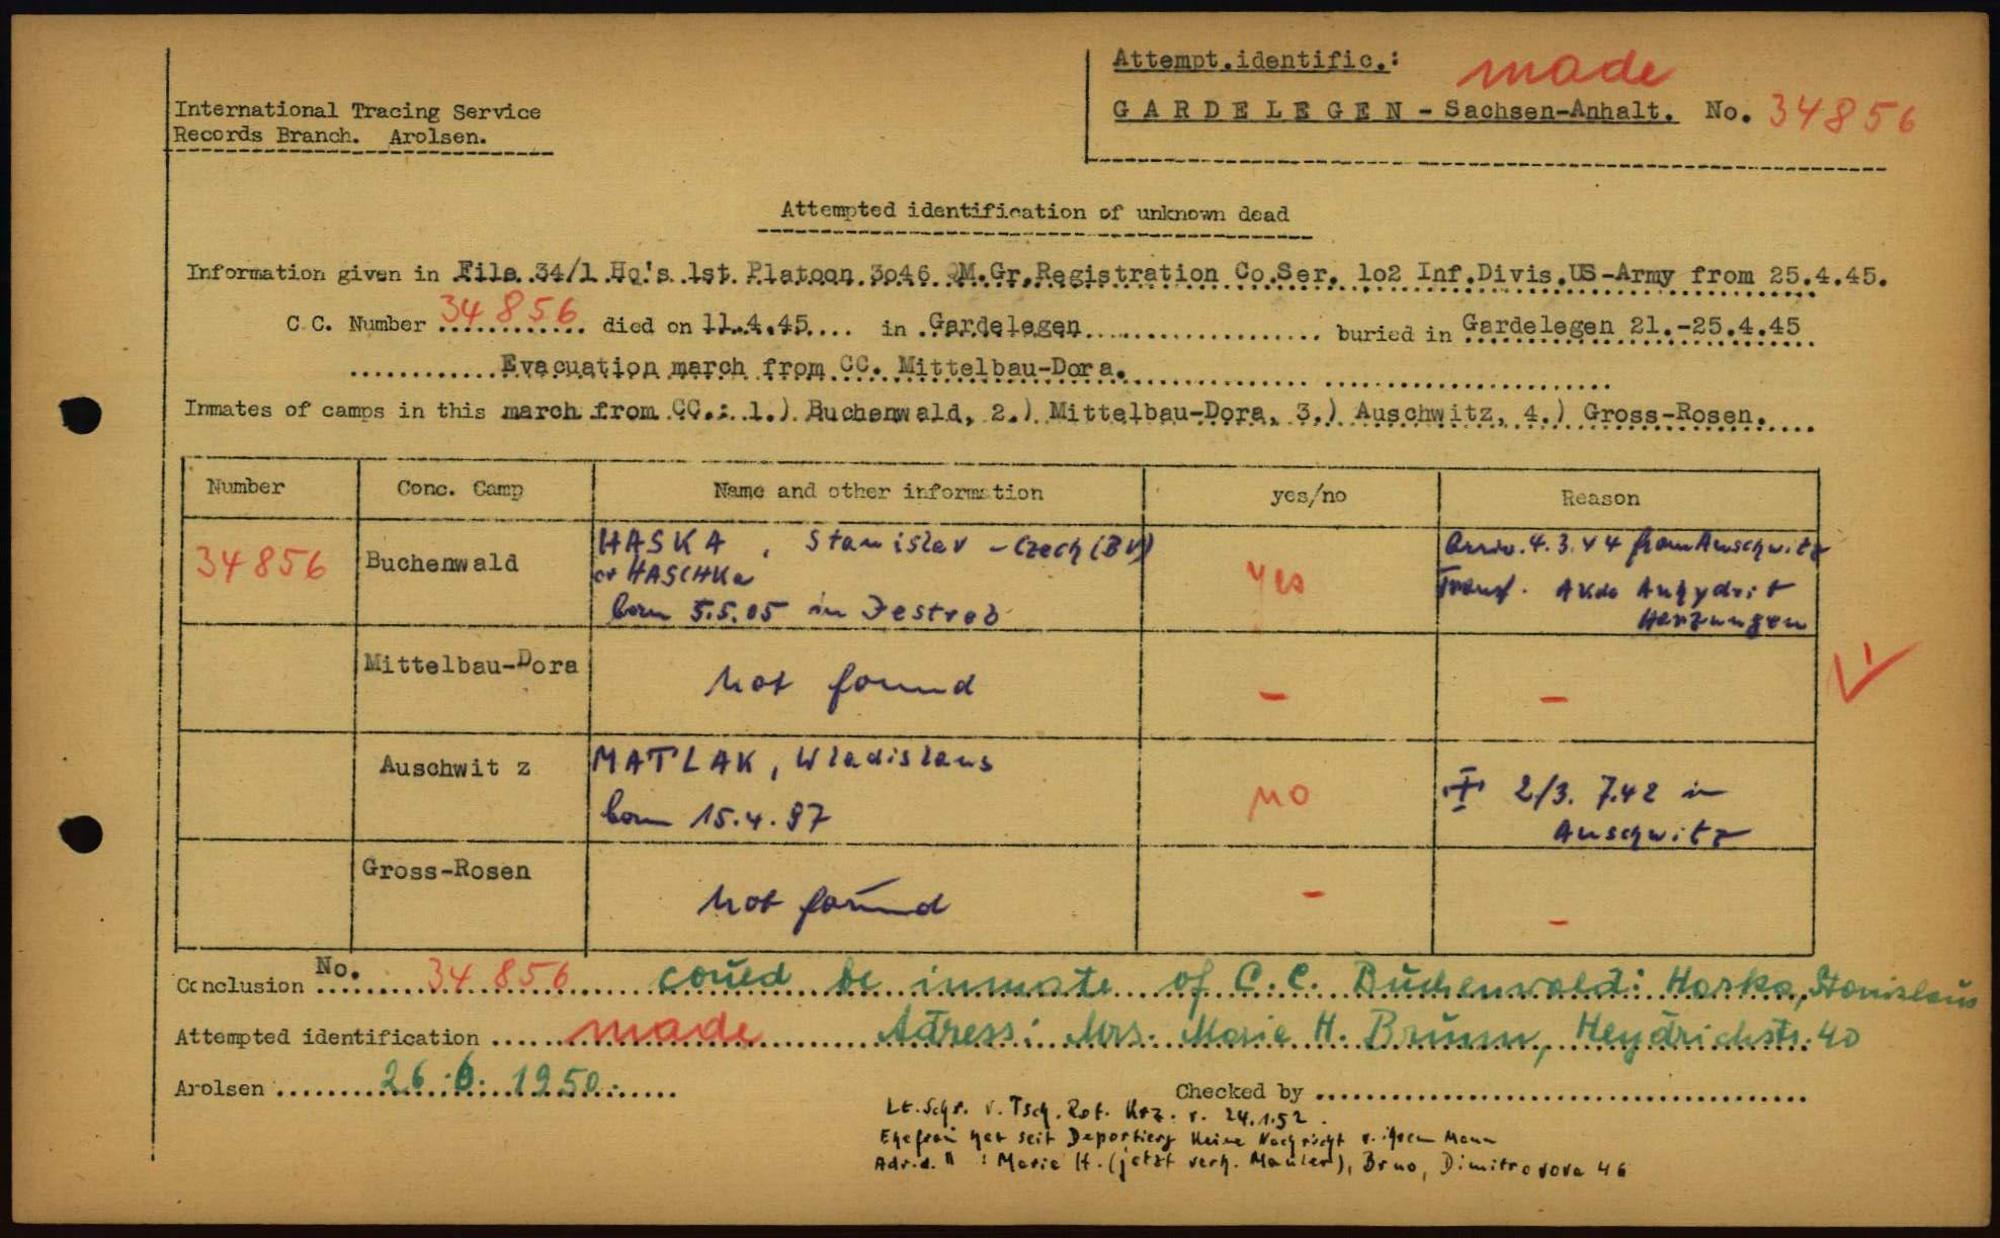 International Tracing Service
Records Branch. Arolsen.
Attempt.identific.: made
GARDELEGEN - Sachsen-Anhalt. No. 34856
Attempted identification of unknown dead
Information given in File 34/1 Hq's 1st Platoon 3o46 QM.Gr.Registration Co.Ser. 1o2 Inf.Divis.US-Army from 25.4.45.
C.C. Number 34856 died on 11.4.45 in Gardelegen buried in Gardelegen 21.-25.4.45
Evacuation march from CC. Mittelbau-Dora.
Inmates of camps in this march from CC.: 1.) Buchenwald, 2.) Mittelbau-Dora, 3.) Auschwitz, 4.) Gross-Rosen.
Number Conc. Camp Name and other information yes/no Reason
34856 Buchenwald HASKA, Stanislav - Czech (BV) yes Arriv. 4.3.44 from Auschwitz
or HASCHKa Transf. AKdo Anhydrit
born 5.5.05 in Jestreb Harzungen
Mittelbau-Dora not found - -
Auschwitz MATLAK, Wladislaus no
born 15.4.97 2/3. 7.42 in
Auschwitz
Gross-Rosen not found - -
Conclusion No. 34856 could be inmate of C.C. Buchenwald: Haska, Stanislaus
Attempted identification made Adress: Mrs. Marie H. Brünn, Heydrichstr. 40
Arolsen 26.6.1950. Checked by
Lt. Schr. v. Tsch. Rot. Krz. v. 24.1.52.
Ehefrau hat seit Deportierg keine Nachricht v. ihrem Mann
Adr. d. " : Marie H. (jetzt verh. Mauler), Brno, Dimitrovova 46